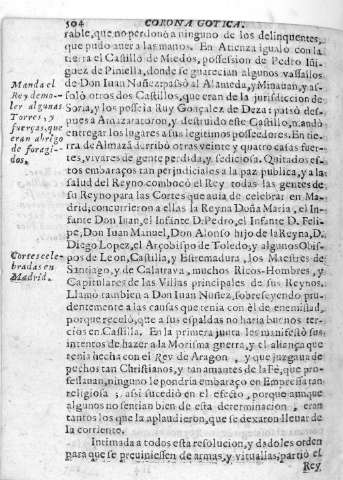 504 CORONA GOTICA.
rable, que no perdonò a ninguno de los delinquentes,
que pudo aver a las manos. En Atienza igualò con la
tierra el Castillo de Miedos, possession de Pedro Iñi-
guez de Piniella, donde se guarecian algunos vassallos
de Don Iuan Nuñez: passò al Alameda, y Minauan, y as-
solò otros dos Castillos, que eran de la jurisdiccion de
Soria, y los posseìa Gonçalez de Deza: passò des-
pues a y destruìdo este Castillo, mandò
entregar los lugares a sus legitimos posseedores. En tie-
rra de Almazà derribò otras veinte y quatro casas fuer-
tes, vivares de gente perdida, y sediciosa. Quitados es-
tos embaraços tan perjudiciales a la paz publica, y a la
salud del Reyno combocò el Rey todas las gentes de
su Reyno para las Cortes que auia de celebrar en Ma-
drid, concurrieron a ellas la Reyna Doña Maria, el In-
fante Don Iuan, el Infante D. Pedro, el Infante D. Feli-
pe, Don Iuan Manuel, Don Alonso hijo de la Reyna, D.
Diego Lopez, el Arçobispo de Toledo, y algunos Obis-
pos de Leon, Castilla, y Estremadura, los Maestres de
Santiago, y de Calatrava, muchos Ricos-Hombres, y
Capitulares de las Villas principales de sus Reynos.
Llamò tambien a Don Iuan Nuñez, sobreseyendo pru-
dentemente a las causas que tenia con èl de enemistad,
porque recelò, que a sus espaldas no haria buenos ter-
cios en Castilla. En la primera junta les manifestò sus
intentos de hazer a la Morisma guerra, y el aliança que
tenia hecha con el Rey de Aragon, y que juzgaua de
pechos tan Christianos, y tan amantes de la Fè, que pro-
fessauan, ninguno le pondria embaraço en Empresa tan
religiosa; assi sucediò en el efecto, porque aunque
algunos no sentian bien de esta determinacion, eran
tantos los que la aplaudieron, que se dexaron lleuar de
la corriente.
Intimada a todos esta resolucion, y dadoles orden
para que se preuiniessen de armas, y vituallas, partiò el
Rey
Manda el
Rey demo-
ler algunas
Torres, y
fuerças, que
eran abrigo
de foragi-
dos.
Cortes cele-
bradas en
Madrid.